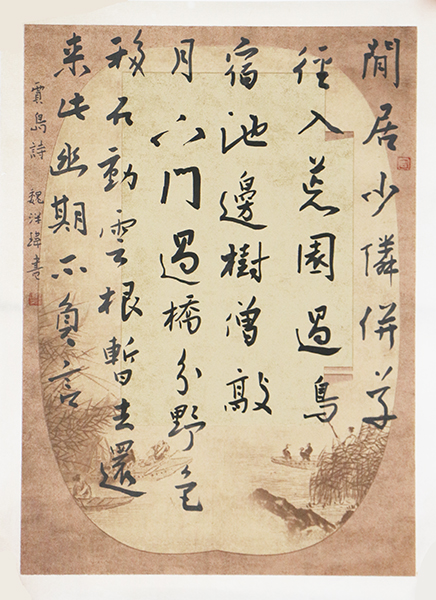 閒居少隣併草
徑入荒園過鳥
宿池邊樹僧敲
月下門過橋分野色
移石動雲根暫去還
來此幽期不負言
賈島詩 魏 書